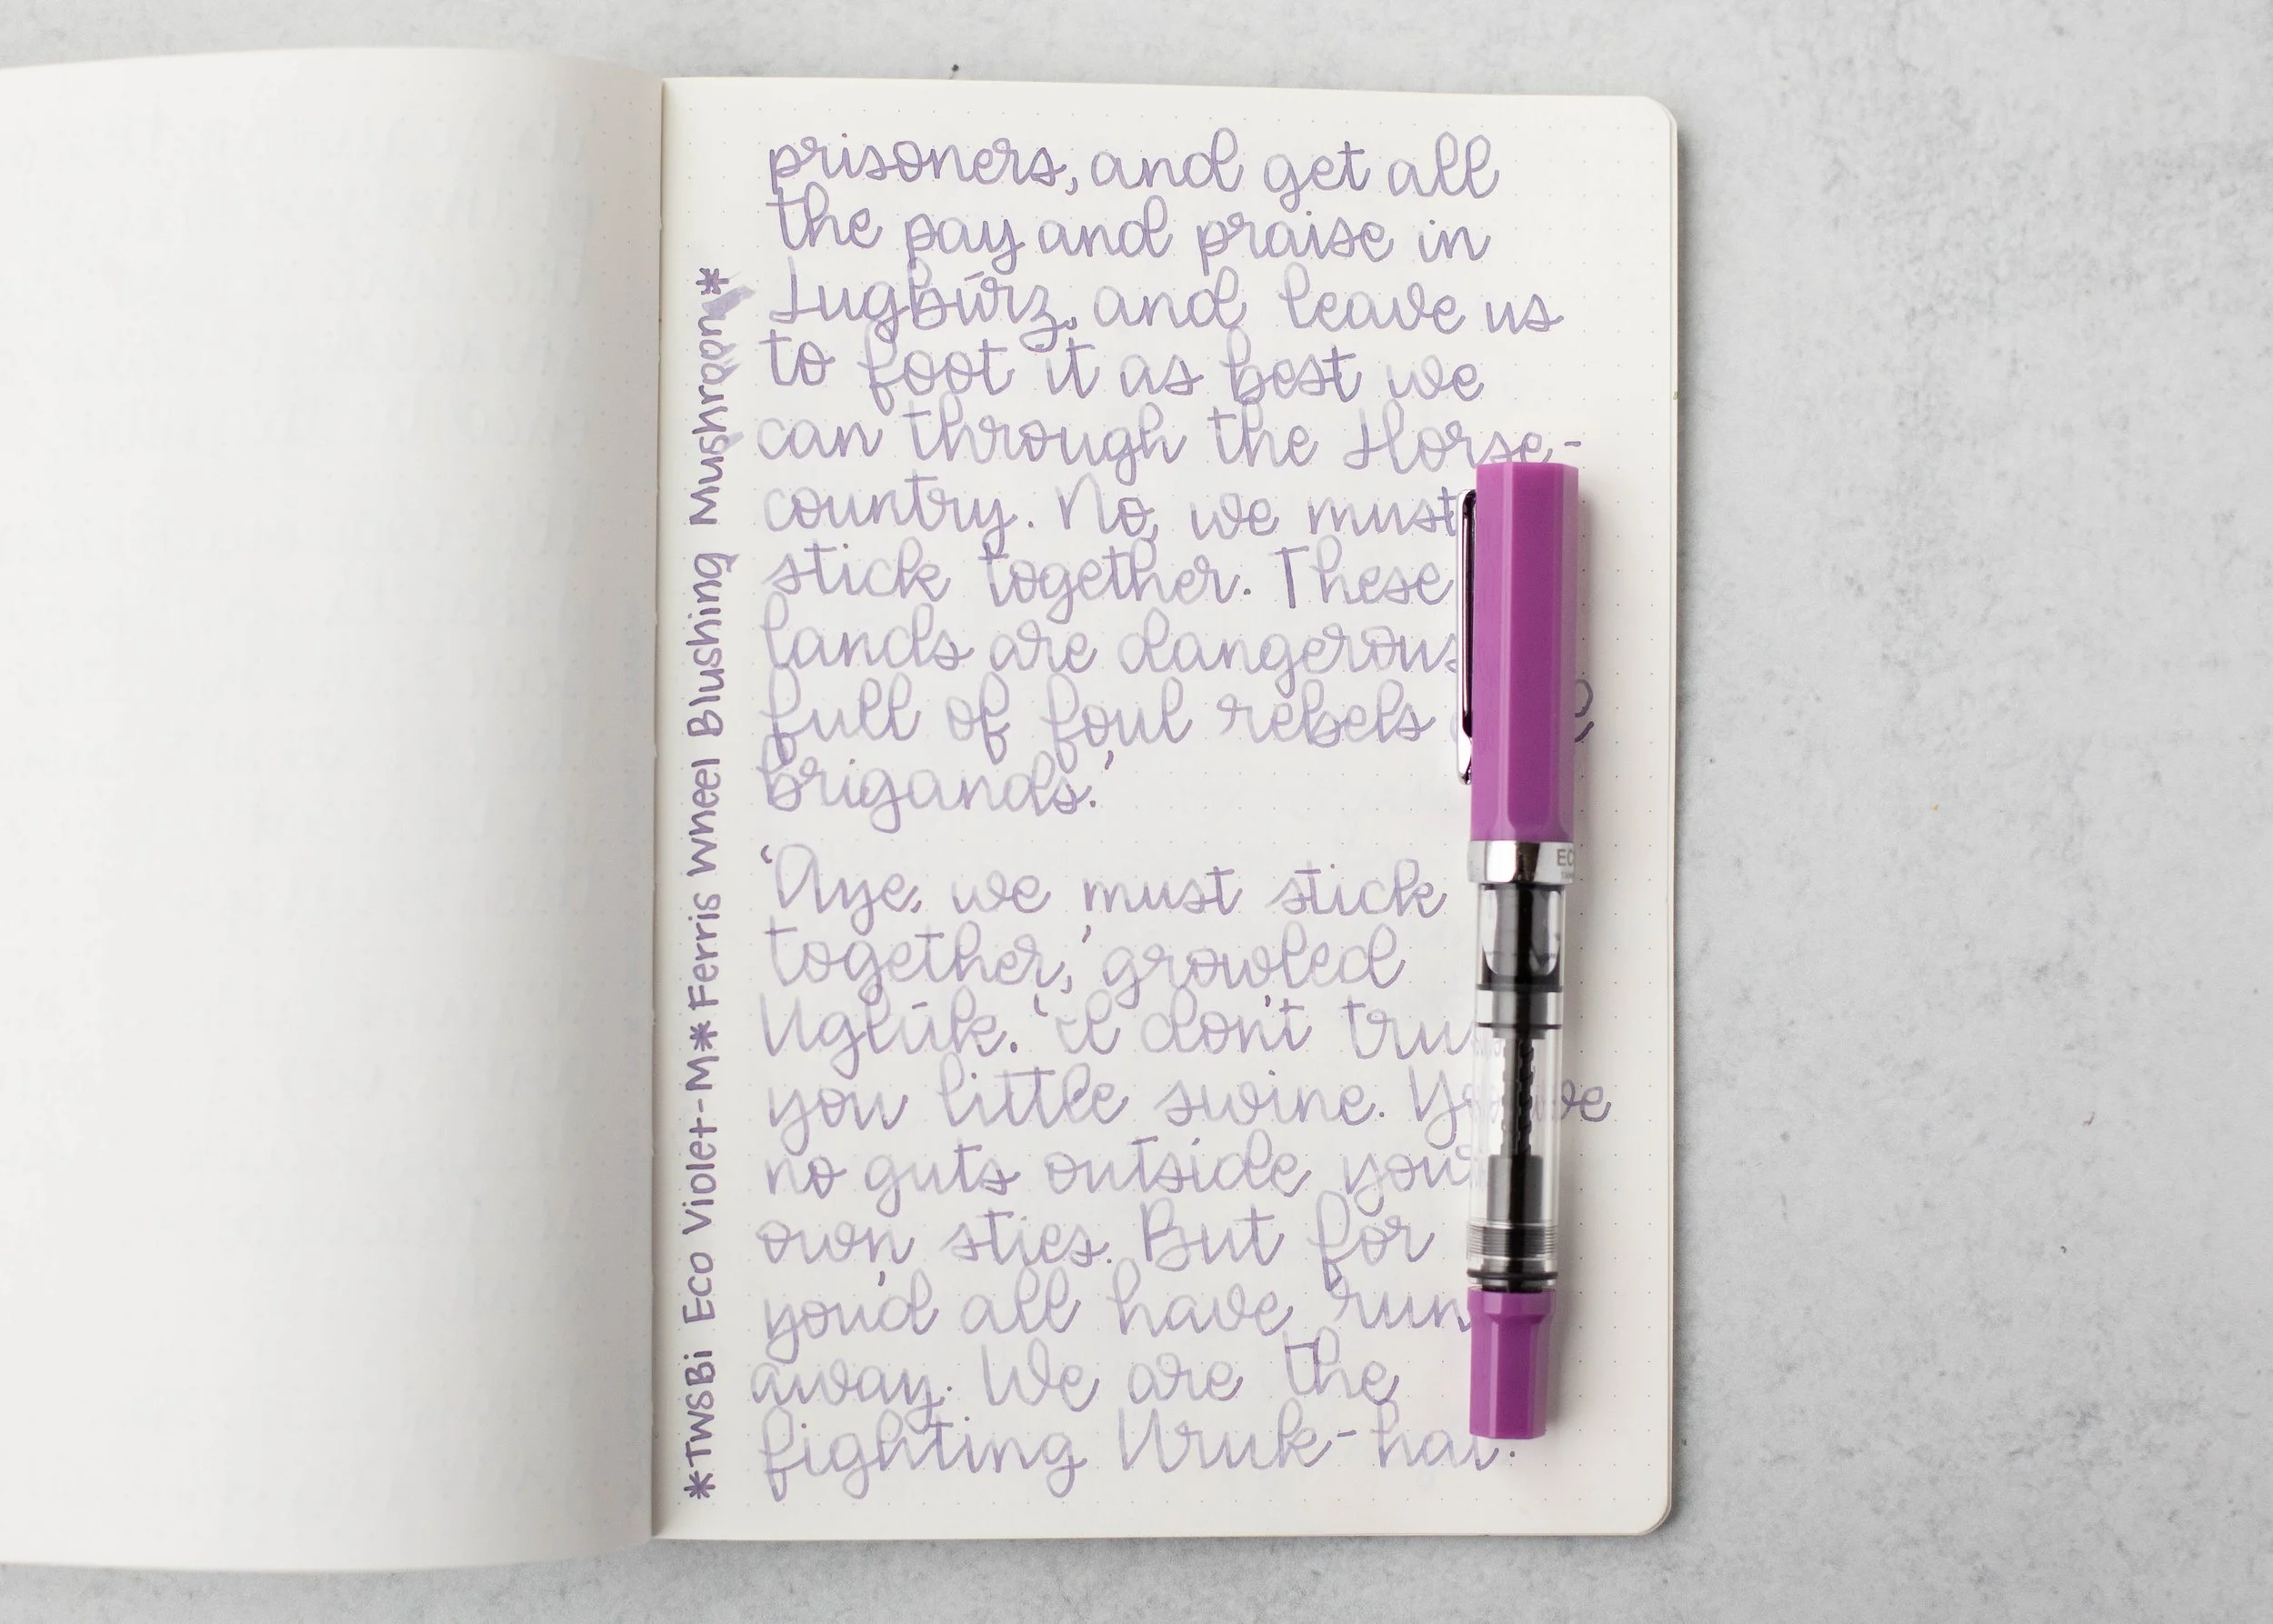 prisoners, and get all
the pay and praise in
Lugbúrz, and leave us
to foot it as best we
can through the Horse-
country. No, we must
stick together. These
lands are dangerous
full of foul rebels
brigands.'
'Aye, we must stick
together,' growled
Uglúk. 'I don't
you little swine.
no guts outside your
own sties. But for
you'd all have run
away. We are the
fighting Uruk-hai.
*TWSBi Eco Violet-M*Ferris Wheel Blushing Mushroon*